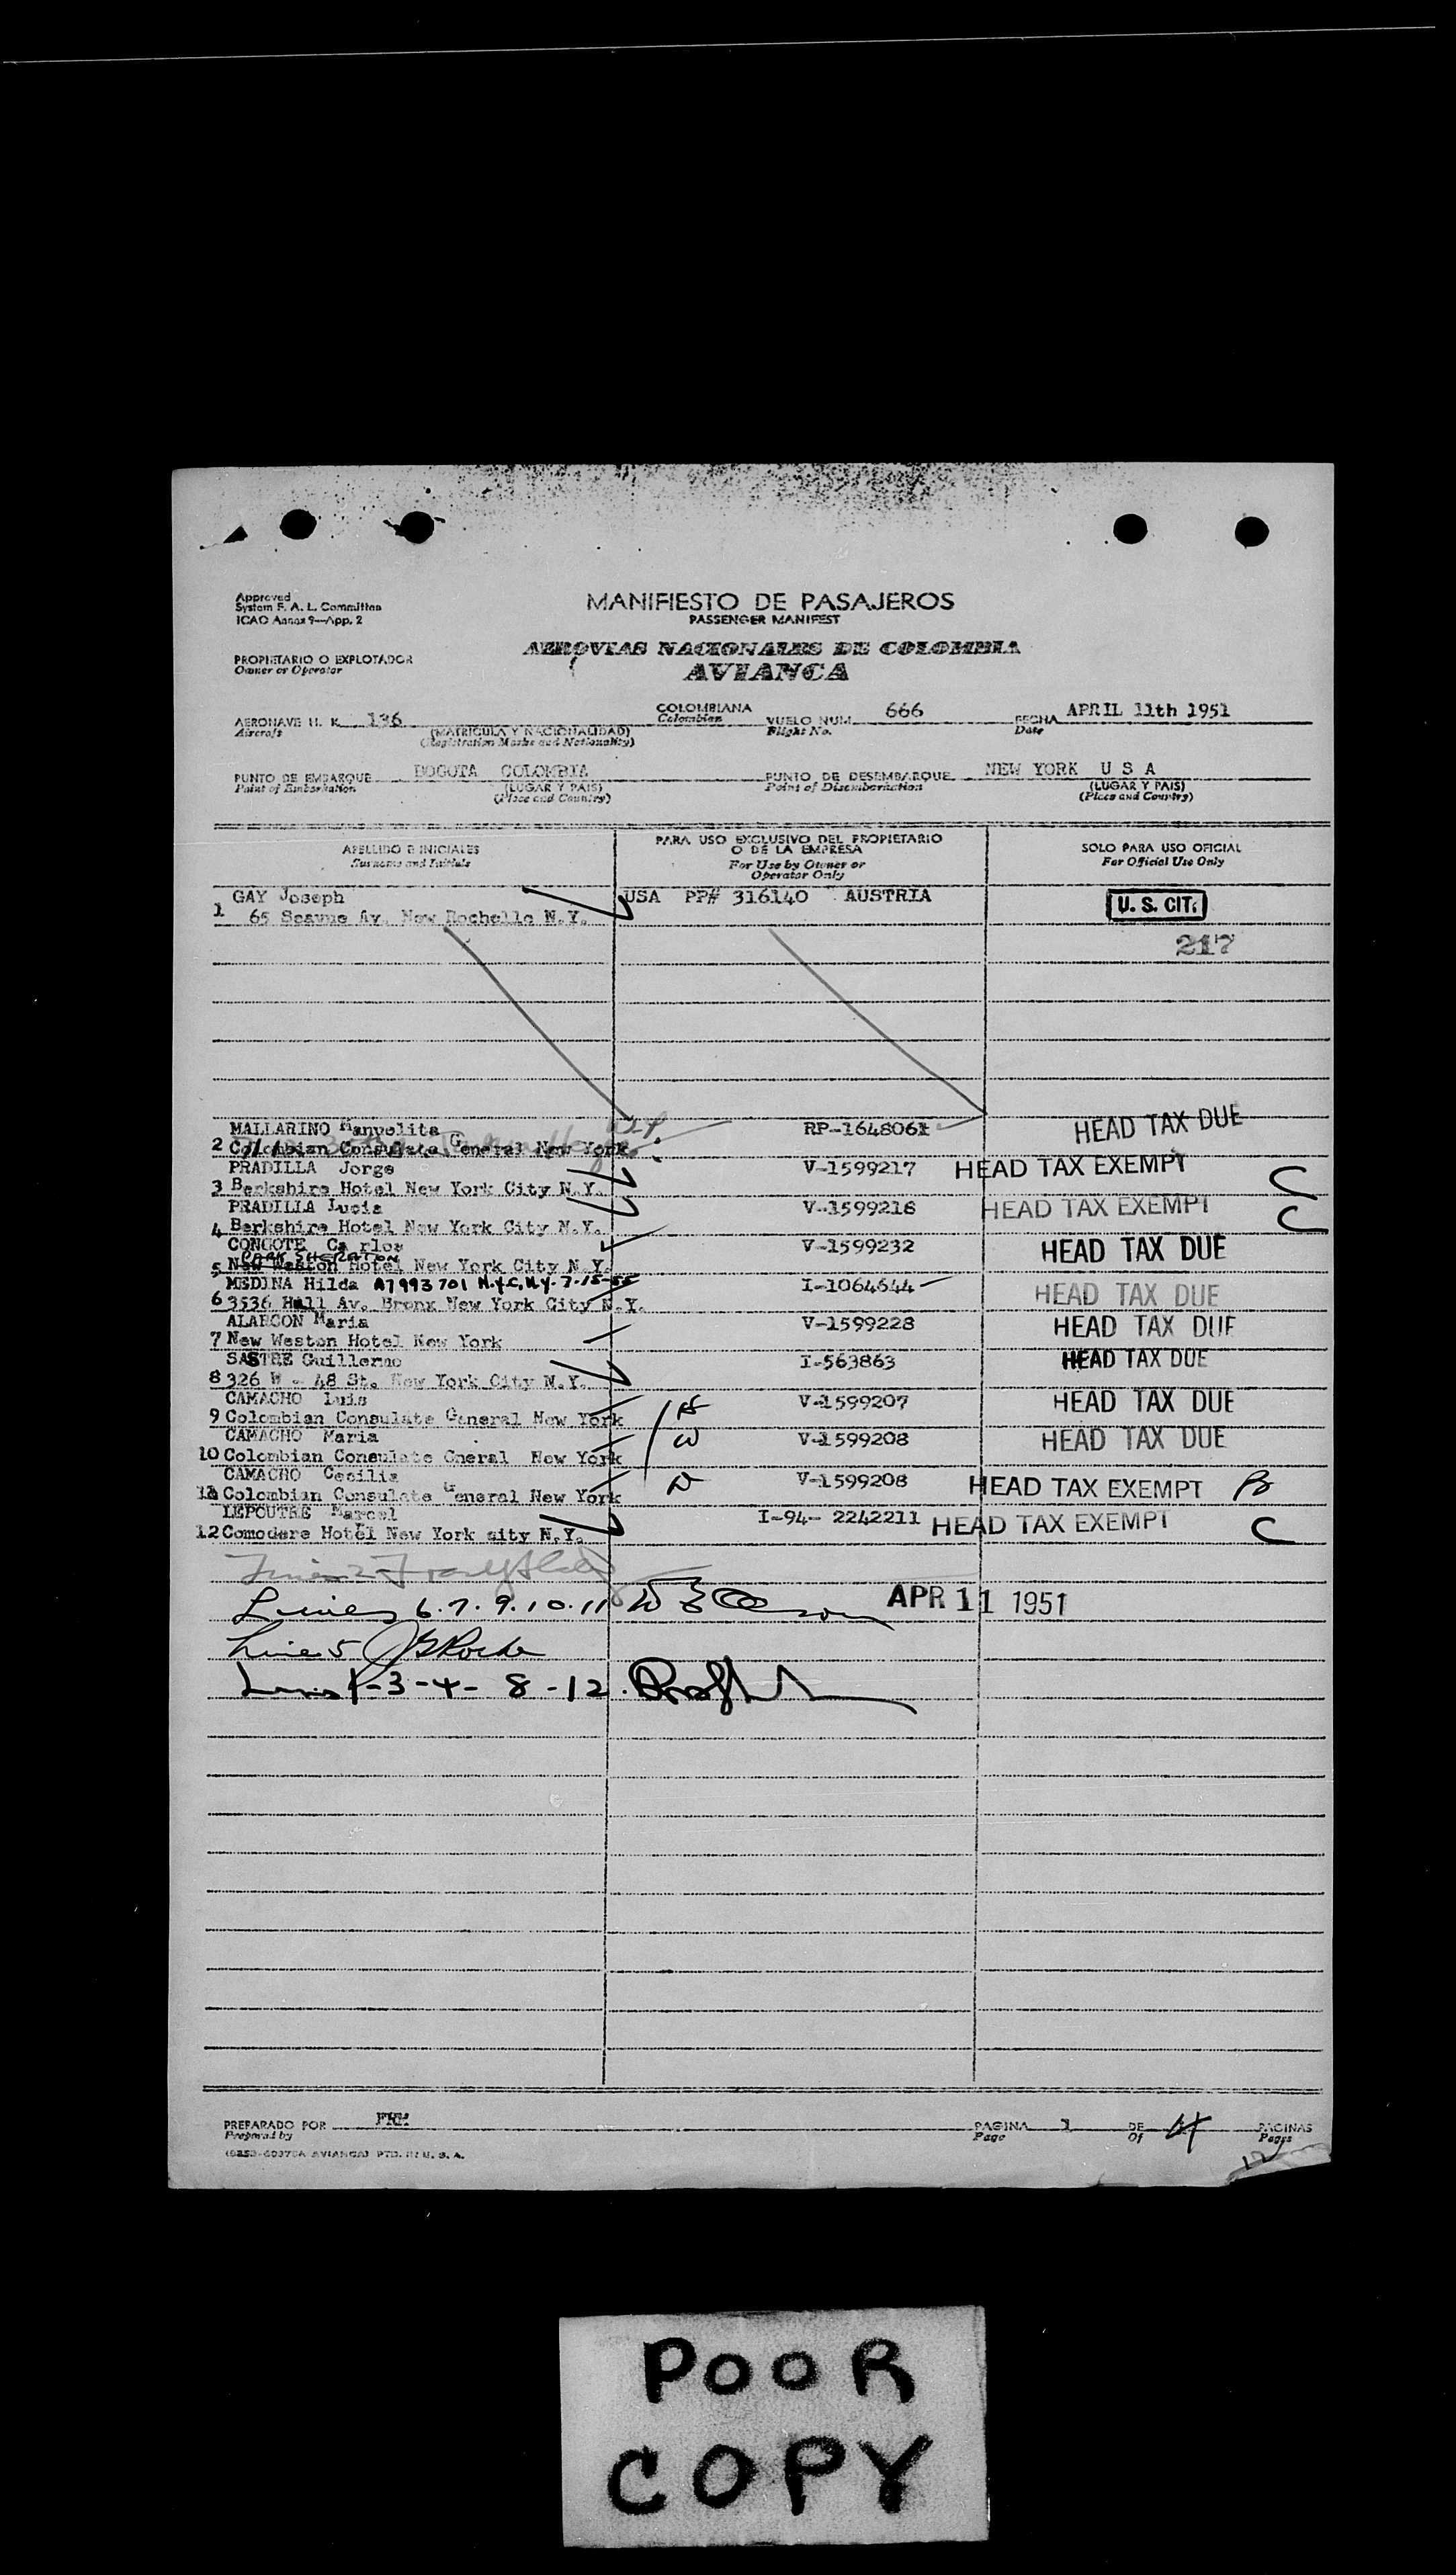 Approved
System F. A. L. Committee
ICAO Annex 9—App. 2
MANIFIESTO DE PASAJEROS
PASSENGER MANIFEST
PROPIETARIO O EXPLOTADOR
Owner or Operator
AEROVIAS NACIONALES DE COLOMBIA
AVIANCA
AERONAVE H. K. 136 COLOMBIANA VUELO NUM. 666 FECHA APRIL 11th 1951
Aircraft (MATRICULA Y NACIONALIDAD) Colombian Flight No. Date
(Registration Marks and Nationality)
PUNTO DE EMBARQUE BOGOTA COLOMBIA PUNTO DE DESEMBARQUE NEW YORK U S A
Point of Embarkation (LUGAR Y PAIS) Point of Disembarkation (LUGAR Y PAIS)
(Place and Country) (Place and Country)
APELLIDO E INICIALES PARA USO EXCLUSIVO DEL PROPIETARIO O DE LA EMPRESA SOLO PARA USO OFICIAL
Surname and Initials For Use by Owner or Operator Only For Official Use Only
GAY Joseph USA PP# 316140 AUSTRIA U. S. CIT.
1 65 Av. New Rochelle N.Y.
217
MALLARINO Manuelita RP-1648061 HEAD TAX DUE
2 Colombian Consulate General New York
PRADILLA Jorge V-1599217 HEAD TAX EXEMPT C
3 Berkshire Hotel New York City N.Y.
PRADILLA Lucia V-1599218 HEAD TAX EXEMPT C
4 Berkshire Hotel New York City N.Y.
CONGOTE Carlos V-1599232 HEAD TAX DUE
PARK SHERATON
5 New Weston Hotel New York City N.Y.
MEDINA Hilda A7993701 N.Y.C, N.Y. 7-15-55 I-1064644 HEAD TAX DUE
6 3536 Hall Av. Bronx New York City N.Y.
ALARCON Maria V-1599228 HEAD TAX DUE
7 New Weston Hotel New York
SASTRE Guillermo I-563863 HEAD TAX DUE
8 326 W - 48 St. New York City N.Y.
CAMACHO Luis V-1599207 HEAD TAX DUE
9 Colombian Consulate General New York
CAMACHO Maria W V-1599208 HEAD TAX DUE
10 Colombian Consulate Gneral New York
CAMACHO Cecilia V-1599208 HEAD TAX EXEMPT B
11 Colombian Consulate General New York
LEPOUTRE Marcel I-94- 2242211 HEAD TAX EXEMPT C
12 Comodore Hotel New York city N.Y.
Lines 6.7.9.10.11 APR 11 1951
Line 5
Lines 1-3-4-8-12.
PREPARADO POR FRM PAGINA 1 DE 4 PAGINAS
Prepared by Page Of Pages
AVIANCA) PTD. IN U. S. A.
POOR
COPY